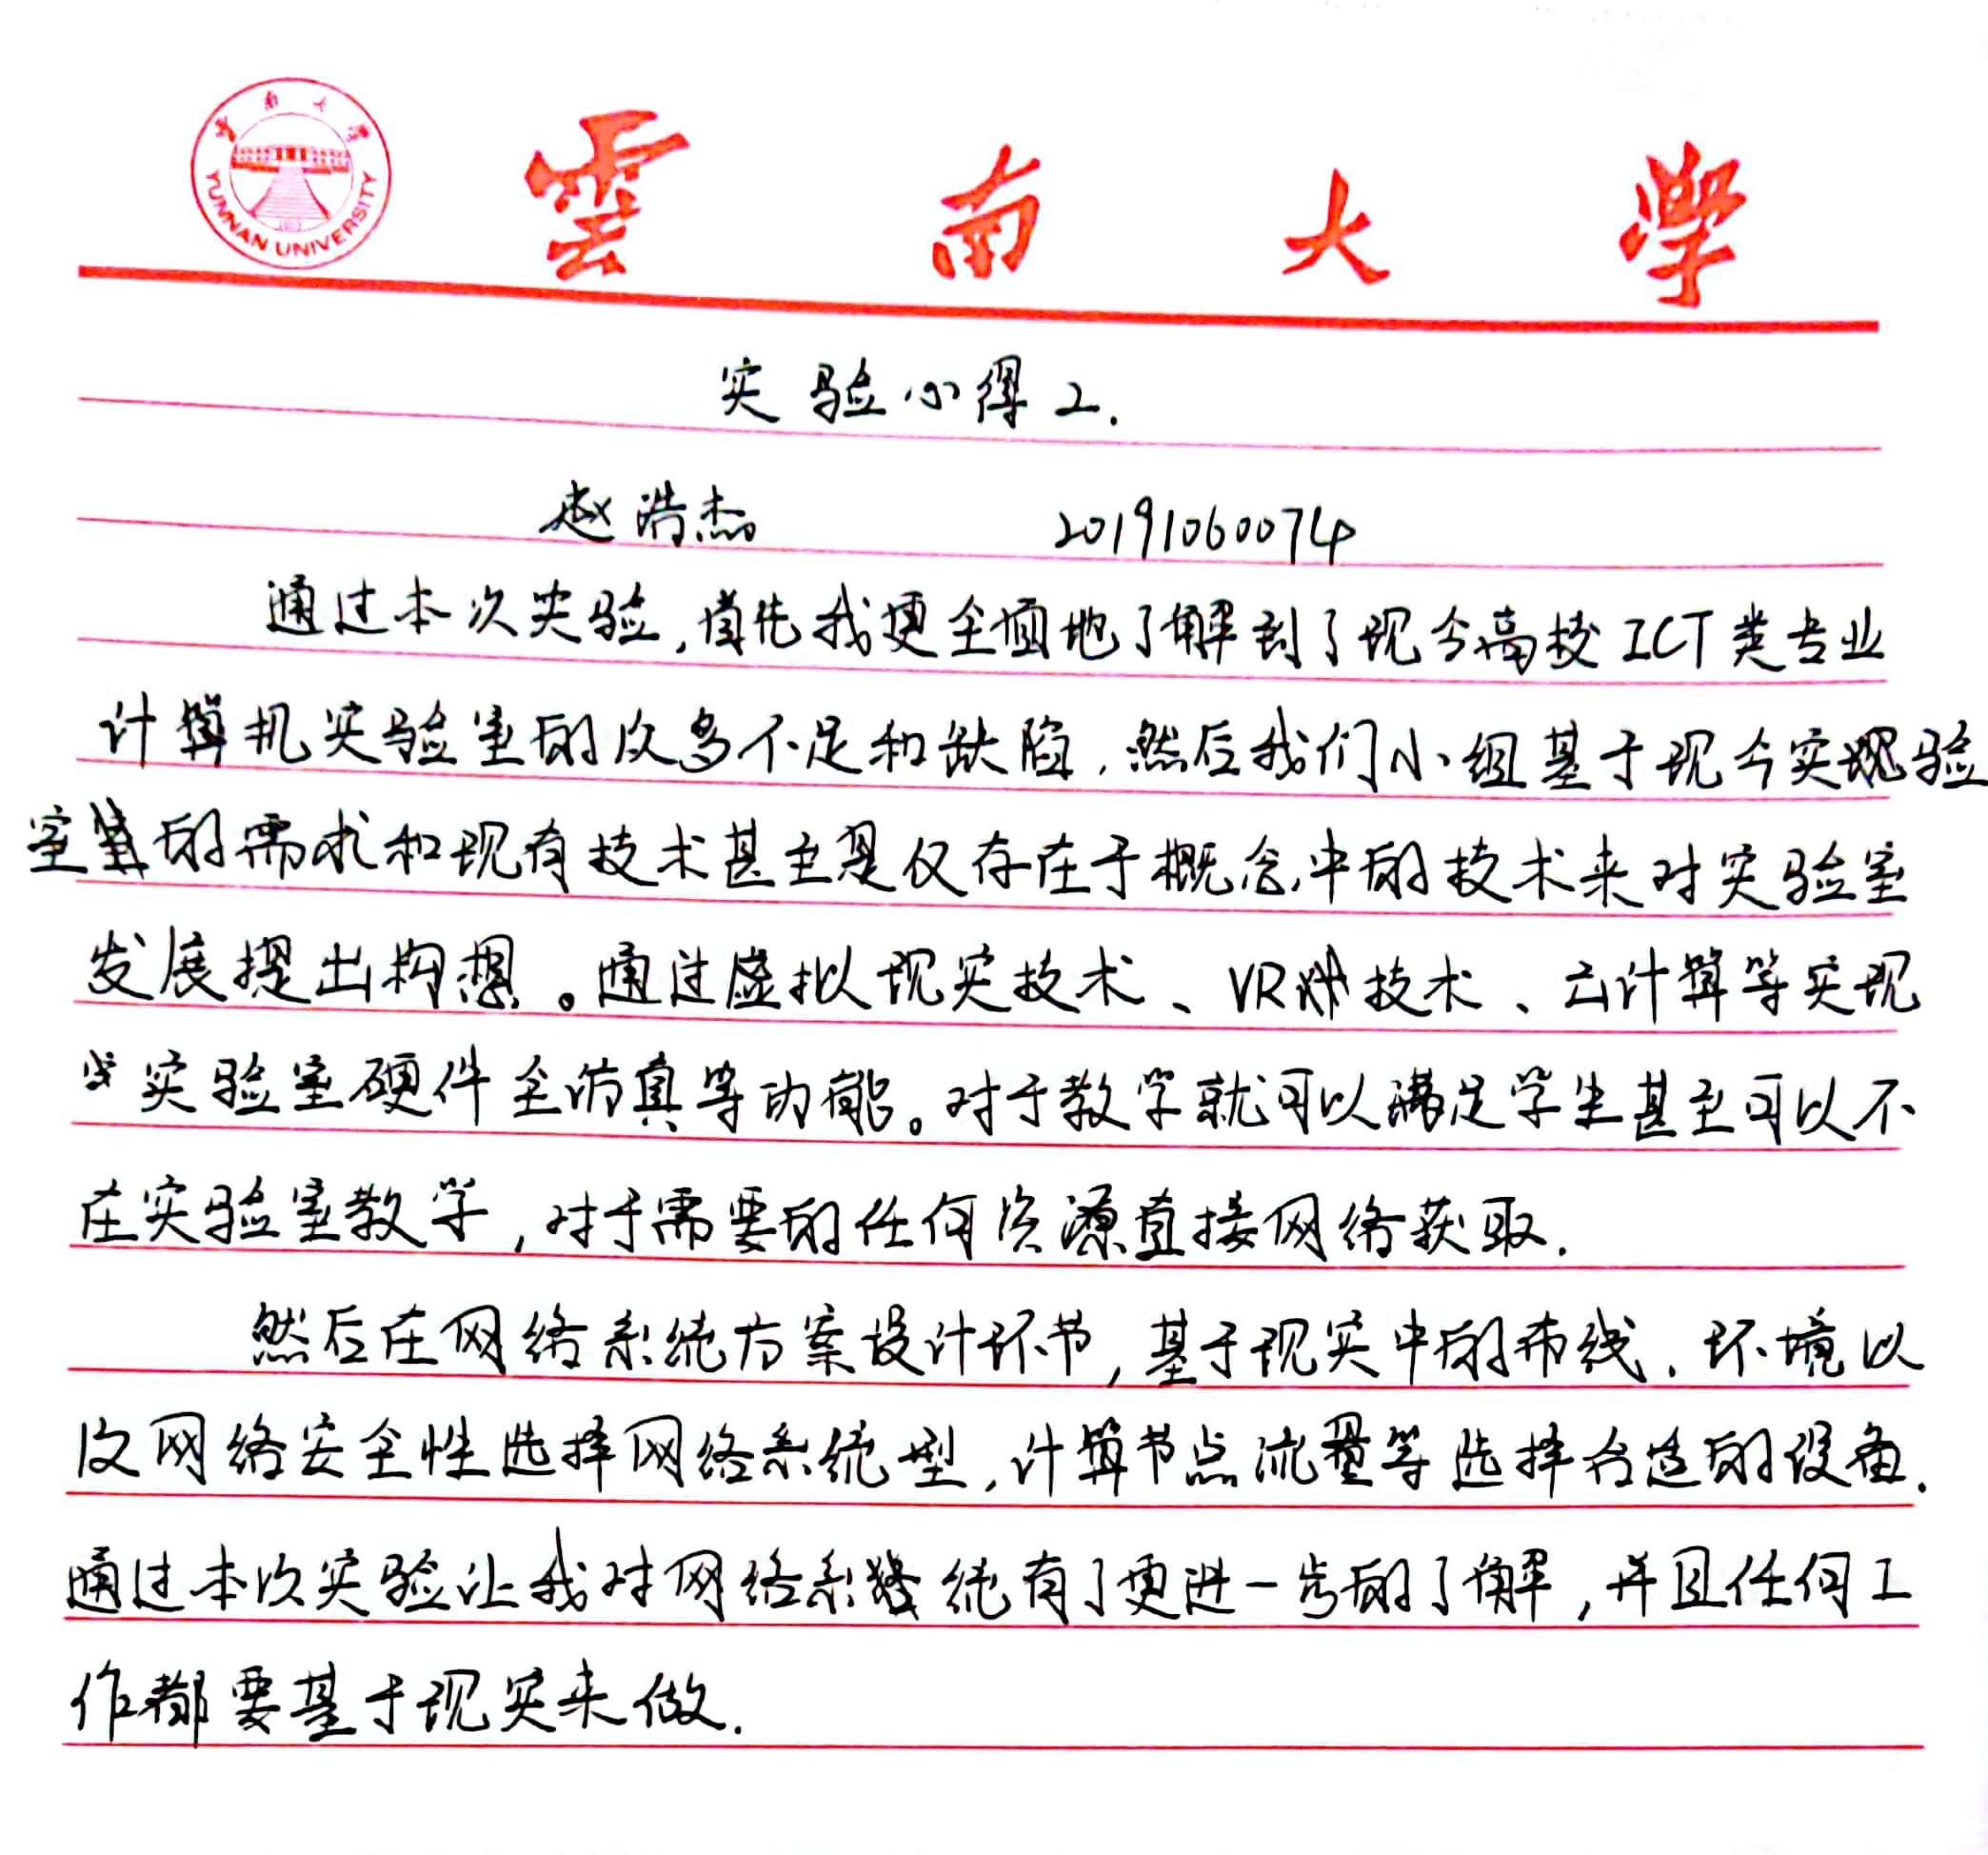 雲南大學
YUNNAN UNIVERSITY
实验心得2.
赵浩杰 20191060074
通过本次实验,首先我更全面地了解到了现今高校ICT类专业
计算机实验室的众多不足和缺陷,然后我们小组基于现今实验
室的需求和现有技术甚至是仅存在于概念中的技术来对实验室
发展提出构想。通过虚拟现实技术、VR技术、云计算等实现
实验室硬件全仿真等功能。对于教学就可以满足学生甚至可以不
在实验室教学,对于需要的任何资源直接网络获取.
然后在网络系统方案设计环节,基于现实中的布线.环境以
及网络安全性选择网络系统型,计算节点流量等选择合适的设备.
通过本次实验让我对网络系统有了更进一步的了解,并且任何工
作都要基于现实来做.